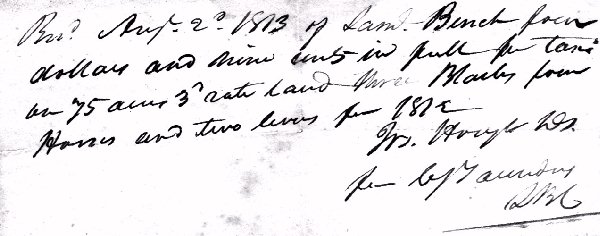 Recd. Augt. 2d. 1813 of Saml. Bench four
dollars and nine cents in full for taxes
on 75 acres 3d rate land three Blacks four
Horses and two levies for 1812
Js. Hough Ds.
for